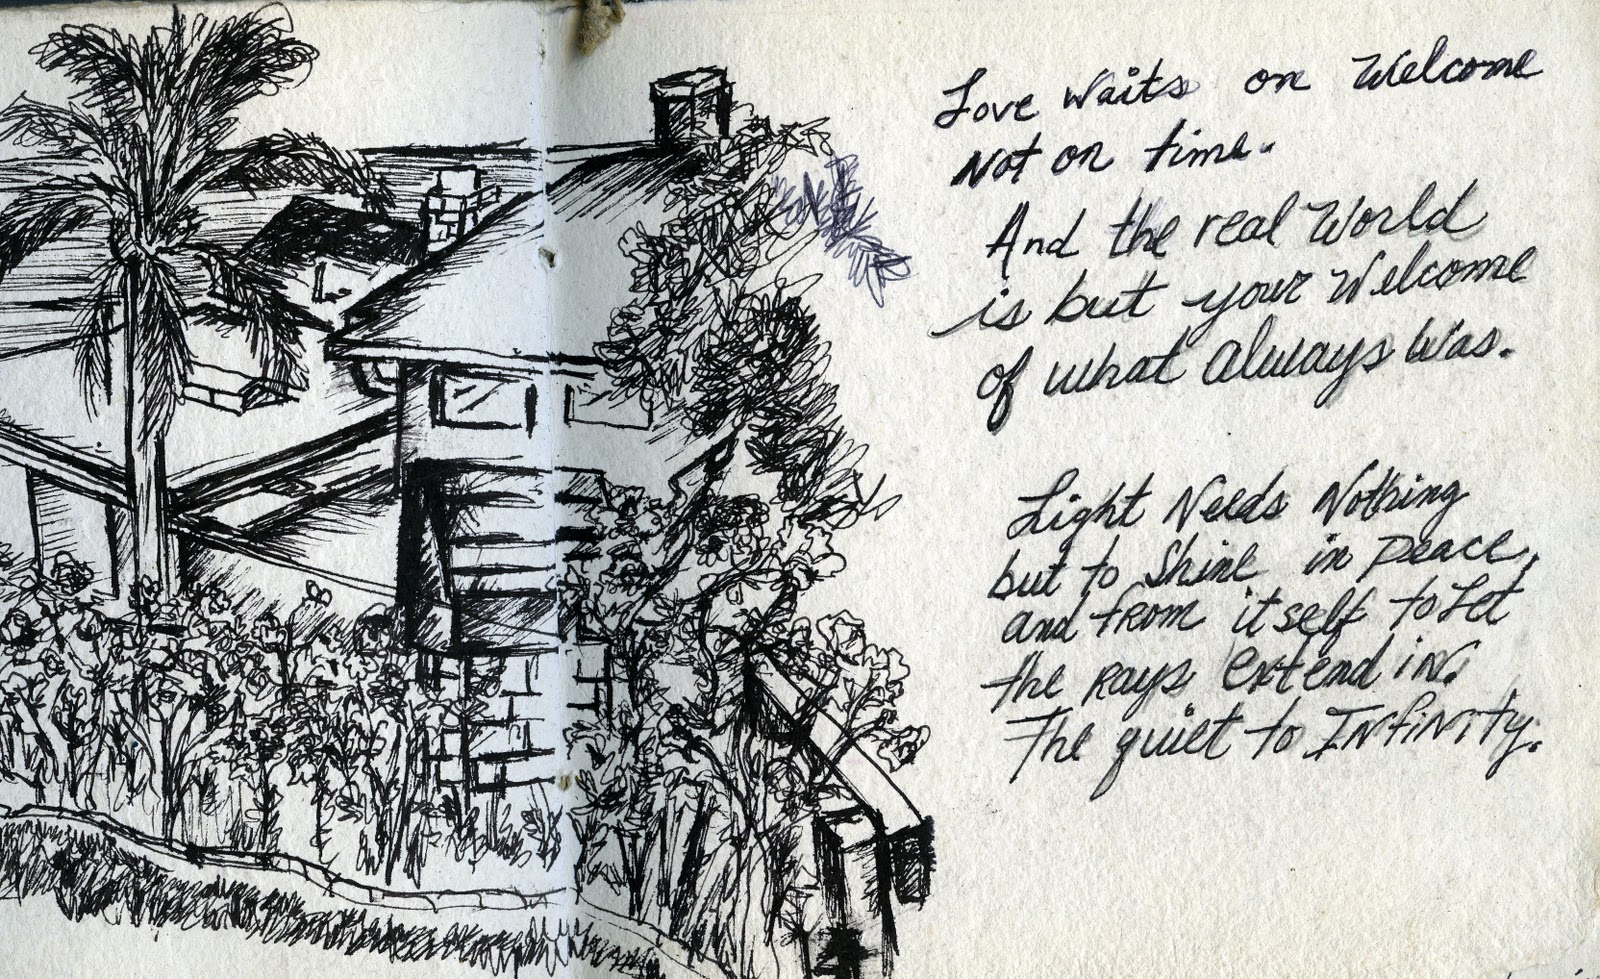 Love waits on Welcome
Not on time.
And the real World
is but your Welcome
of what always was.
Light Needs Nothing
but to Shine in peace,
and from itself to Let
the Rays extend in
The quiet to INfiNITy.